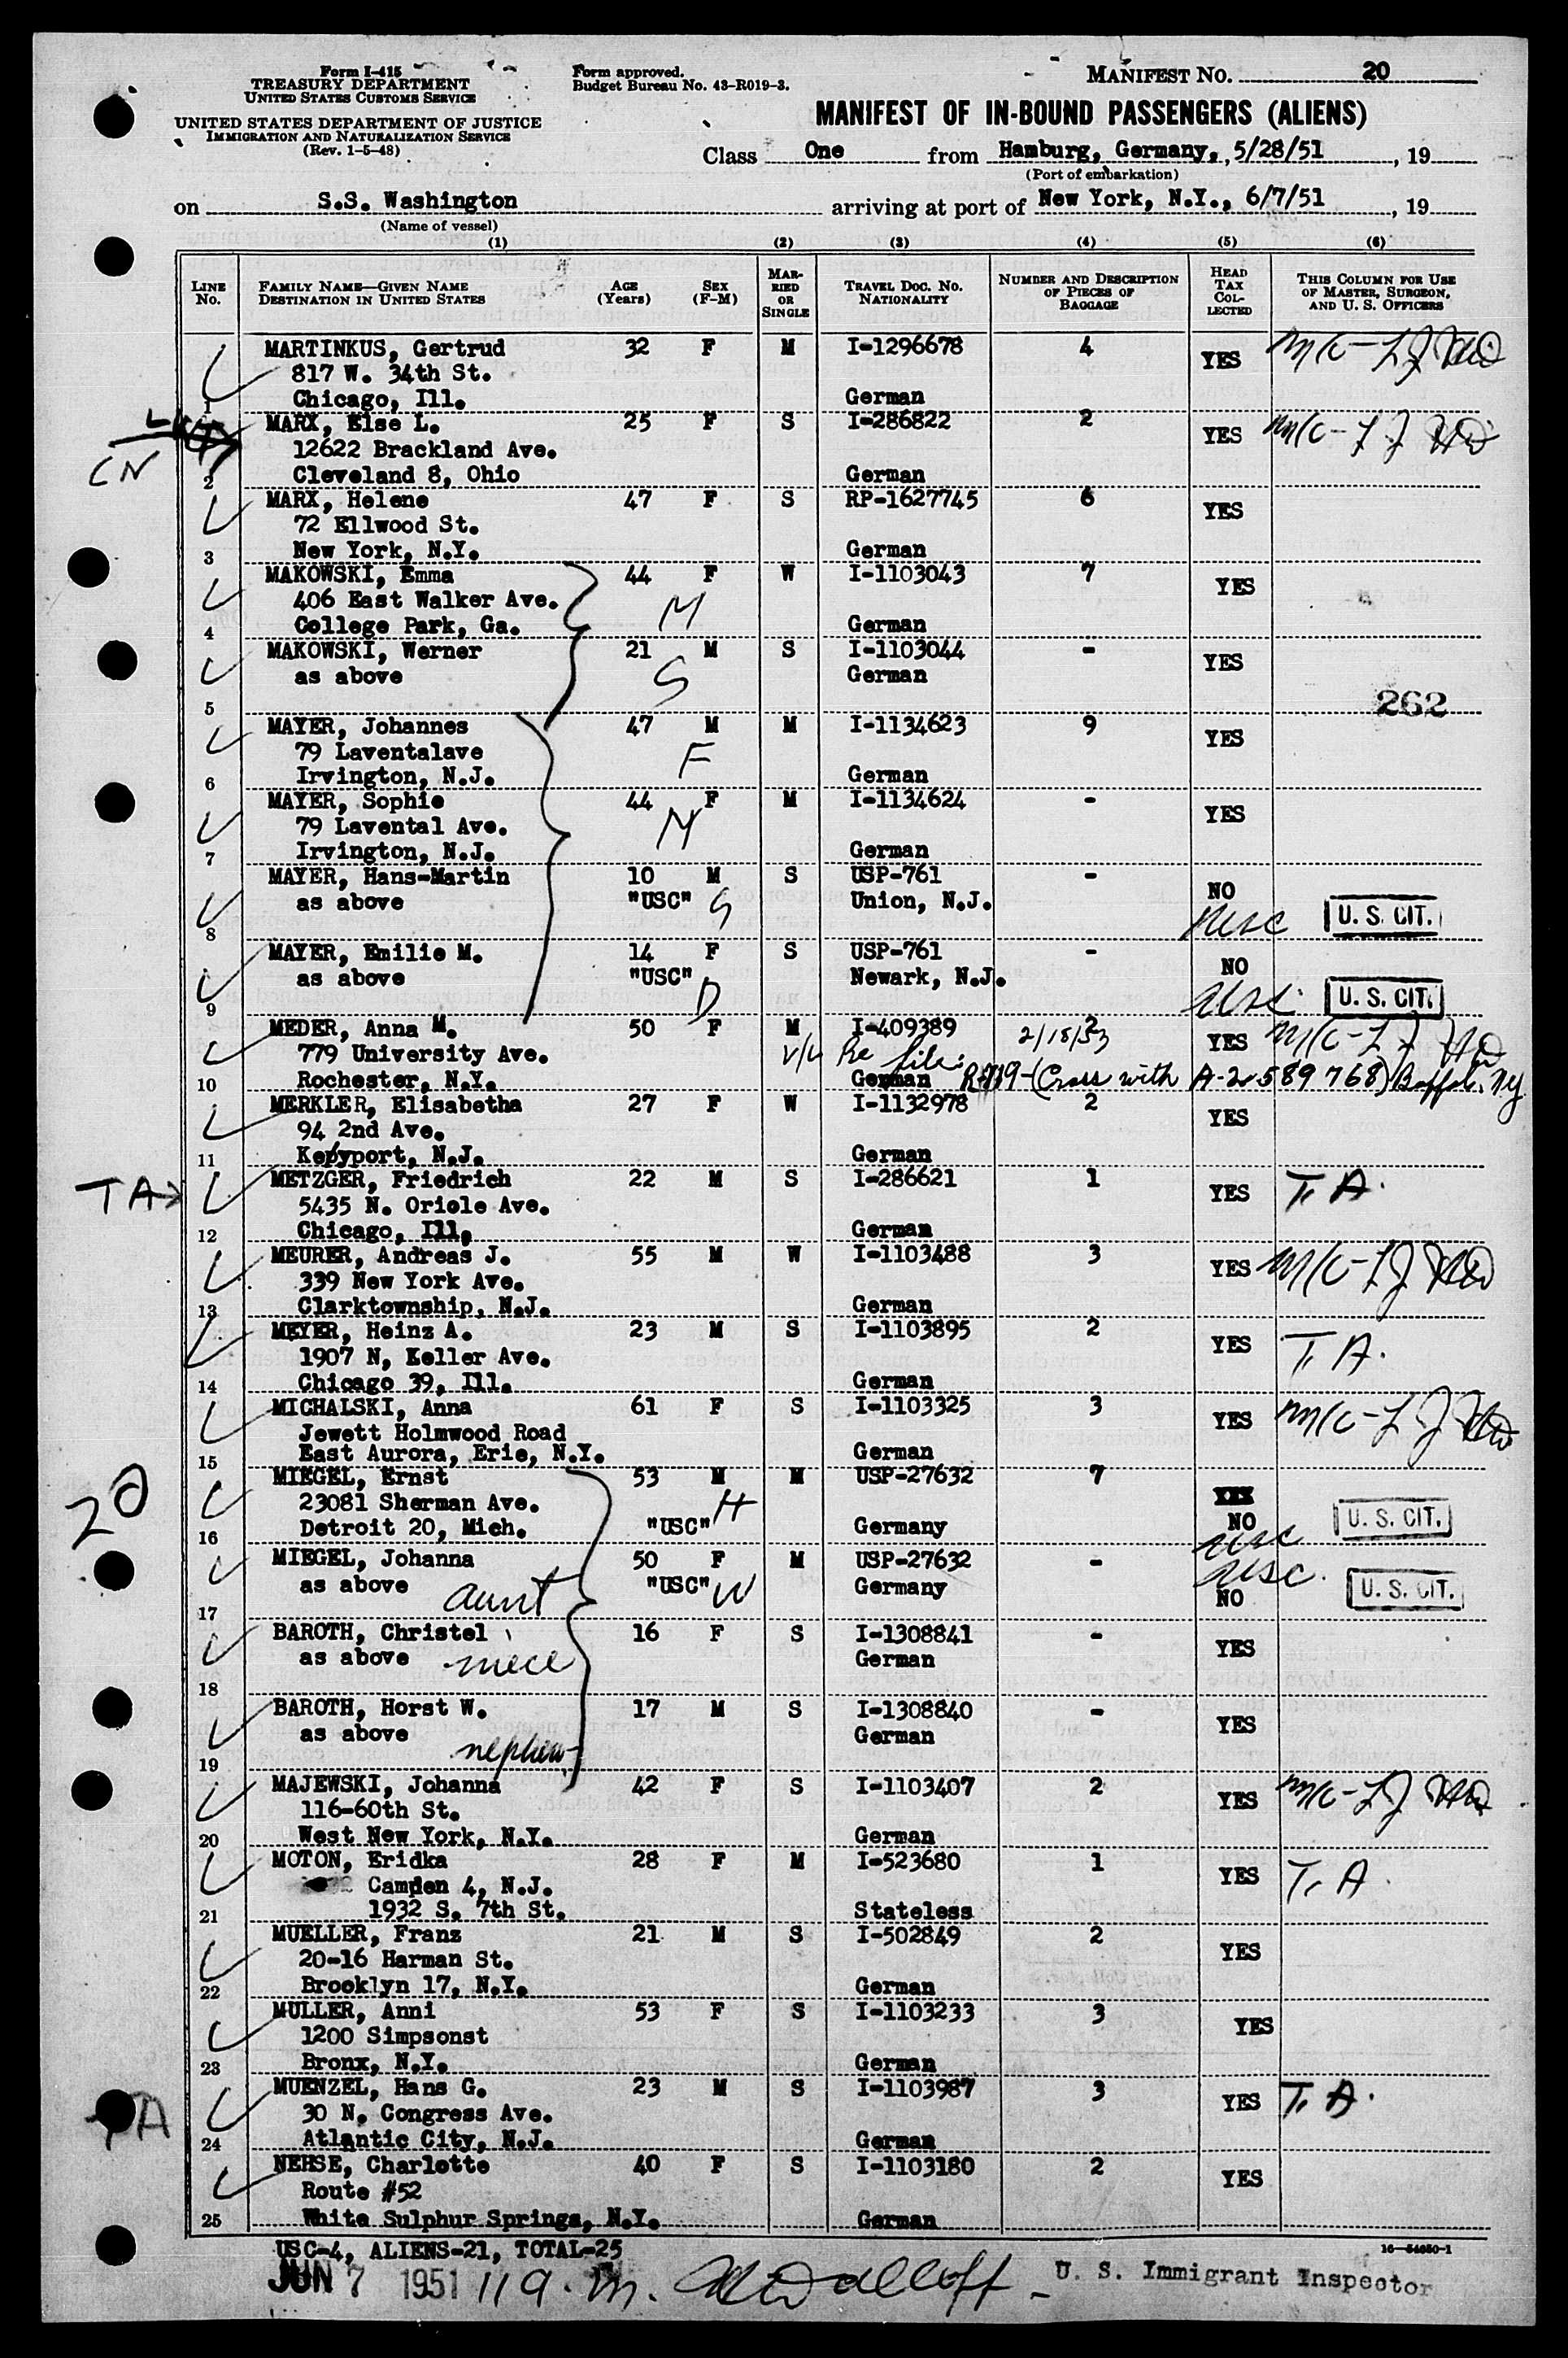 Form I-415
TREASURY DEPARTMENT
UNITED STATES CUSTOMS SERVICE
UNITED STATES DEPARTMENT OF JUSTICE
IMMIGRATION AND NATURALIZATION SERVICE
(Rev. 1-5-48)
Form approved.
Budget Bureau No. 43-R019-3.
MANIFEST NO. 20
MANIFEST OF IN-BOUND PASSENGERS (ALIENS)
Class One from Hamburg, Germany, 5/28/51, 19
(Port of embarkation)
on S.S. Washington arriving at port of New York, N.Y., 6/7/51, 19
(Name of vessel)
(1) (2) (3) (4) (5) (6)
LINE No. FAMILY NAME—GIVEN NAME DESTINATION IN UNITED STATES AGE (Years) SEX (F-M) MARRIED OR SINGLE TRAVEL DOC. NO. NATIONALITY NUMBER AND DESCRIPTION OF PIECES OF BAGGAGE HEAD TAX COLLECTED THIS COLUMN FOR USE OF MASTER, SURGEON, AND U. S. OFFICERS
MARTINKUS, Gertrud 32 F M I-1296678 4 YES
817 W. 34th St.
1 Chicago, Ill. German
MARX, Else L. 25 F S I-286822 2 YES
12622 Brackland Ave.
CN
2 Cleveland 8, Ohio German
MARX, Helene 47 F S RP-1627745 6 YES
72 Ellwood St.
3 New York, N.Y. German
MAKOWSKI, Emma 44 F W I-1103043 7 YES
406 East Walker Ave. M
4 College Park, Ga. German
MAKOWSKI, Werner 21 M S I-1103044 - YES
as above S German
5 262
MAYER, Johannes 47 M M I-1134623 9 YES
79 Laventalave F
6 Irvington, N.J. German
MAYER, Sophie 44 F M I-1134624 - YES
79 Lavental Ave. M
7 Irvington, N.J. German
MAYER, Hans-Martin 10 M S USP-761 - NO
as above "USC" S Union, N.J. usc U. S. CIT.
8
MAYER, Emilie M. 14 F S USP-761 - NO
as above "USC" D Newark, N.J. usc U. S. CIT.
9
MEDER, Anna M. 50 F M I-409389 2 YES
779 University Ave. V/L Re file: 2/18/53
10 Rochester, N.Y. German (Cross with A-2589768) Buffalo, NY
MERKLER, Elisabetha 27 F W I-1132978 2 YES
94 2nd Ave.
11 Keyport, N.J. German
TA METZGER, Friedrich 22 M S I-286621 1 YES T. A.
5435 N. Oriole Ave.
12 Chicago, Ill. German
MEURER, Andreas J. 55 M W I-1103488 3 YES
339 New York Ave.
13 Clarktownship, N.J. German
MEYER, Heinz A. 23 M S I-1103895 2 YES T. A.
1907 N. Keller Ave.
14 Chicago 39, Ill. German
MICHALSKI, Anna 61 F S I-1103325 3 YES
Jewett Holmwood Road
15 East Aurora, Erie, N.Y. German
20 MIEGEL, Ernst 53 M M USP-27632 7 XXX
23081 Sherman Ave. H
16 Detroit 20, Mich. "USC" Germany NO usc U. S. CIT.
MIEGEL, Johanna 50 F M USP-27632 - usc
as above aunt "USC" W Germany NO U. S. CIT.
17
BAROTH, Christel 16 F S I-1308841 - YES
as above niece German
18
BAROTH, Horst W. 17 M S I-1308840 - YES
as above nephew German
19
MAJEWSKI, Johanna 42 F S I-1103407 2 YES
116-60th St.
20 West New York, N.Y. German
MOTON, Eridka 28 F M I-523680 1 YES T. A.
Camden 4, N.J.
21 1932 S. 7th St. Stateless
MUELLER, Franz 21 M S I-502849 2 YES
20-16 Harman St.
22 Brooklyn 17, N.Y. German
MULLER, Anni 53 F S I-1103233 3 YES
1200 Simpsonst
23 Bronx, N.Y. German
TA MUENZEL, Hans G. 23 M S I-1103987 3 YES T. A.
30 N. Congress Ave.
24 Atlantic City, N.J. German
NEHSE, Charlotte 40 F S I-1103180 2 YES
Route #52
25 White Sulphur Springs, N.Y. German
USC-4, ALIENS-21, TOTAL-25 16—54650-1
JUN 7 1951 119. M. U. S. Immigrant Inspector